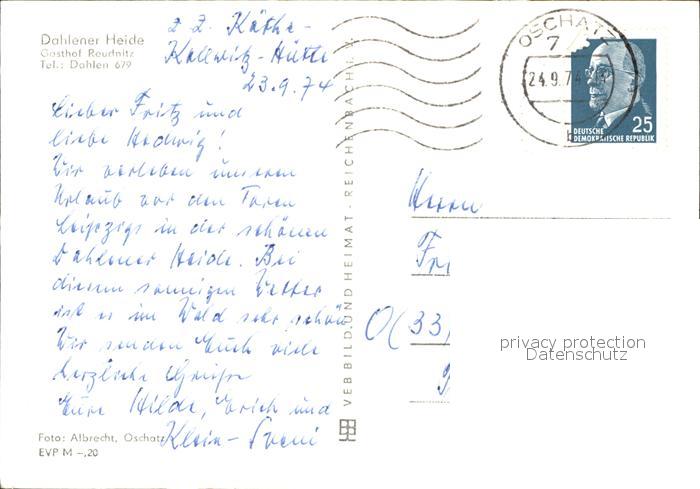 Dahlener Heide
Gasthof Reudnitz
Tel.: Dahlen 679
z Z. Käthe-
Kollwitz-Hütte
23.9.74
Lieber Fritz und
liebe Hedwig!
Wir verleben unseren
Urlaub vor den Toren
Leipzigs in der schönen
Dahlener Heide. Bei
diesem sonnigen Wetter
ist es im Wald sehr schön
Wir senden Euch viele
herzliche Grüße
Eure Hilde, Erich und
Klein-
Foto: Albrecht, Oschatz
EVP M -,20
VEB BILD UND HEIMAT - REICHENBACH i. V.
OSCHATZ
7
24.9.74
b
25
DEUTSCHE
DEMOKRATISCHE REPUBLIK
Herrn
Fri
O(33)
privacy protection
Datenschutz